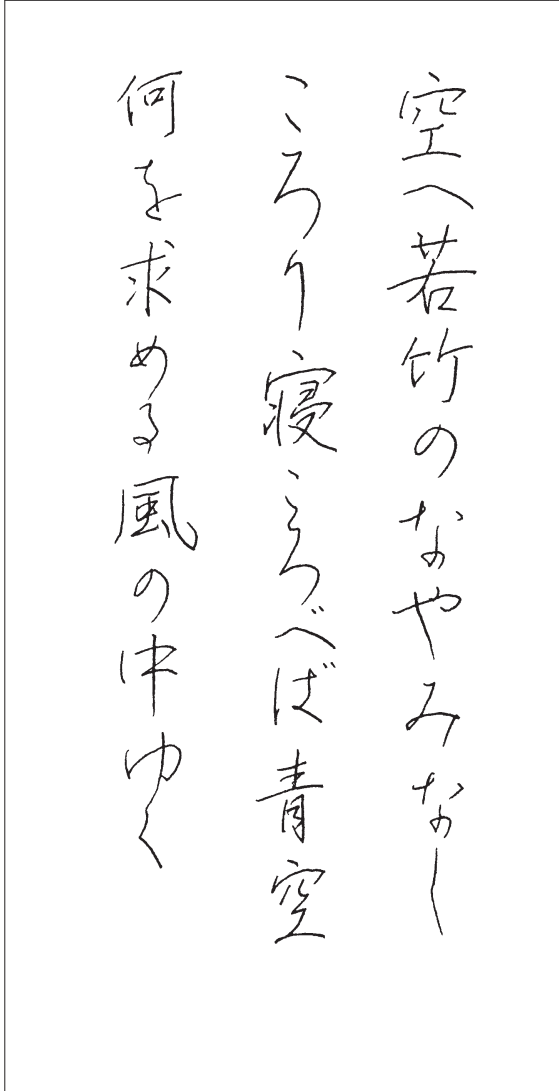 空へ若竹のなやみなし
ころり寝ころべば青空
何を求める風の中ゆく